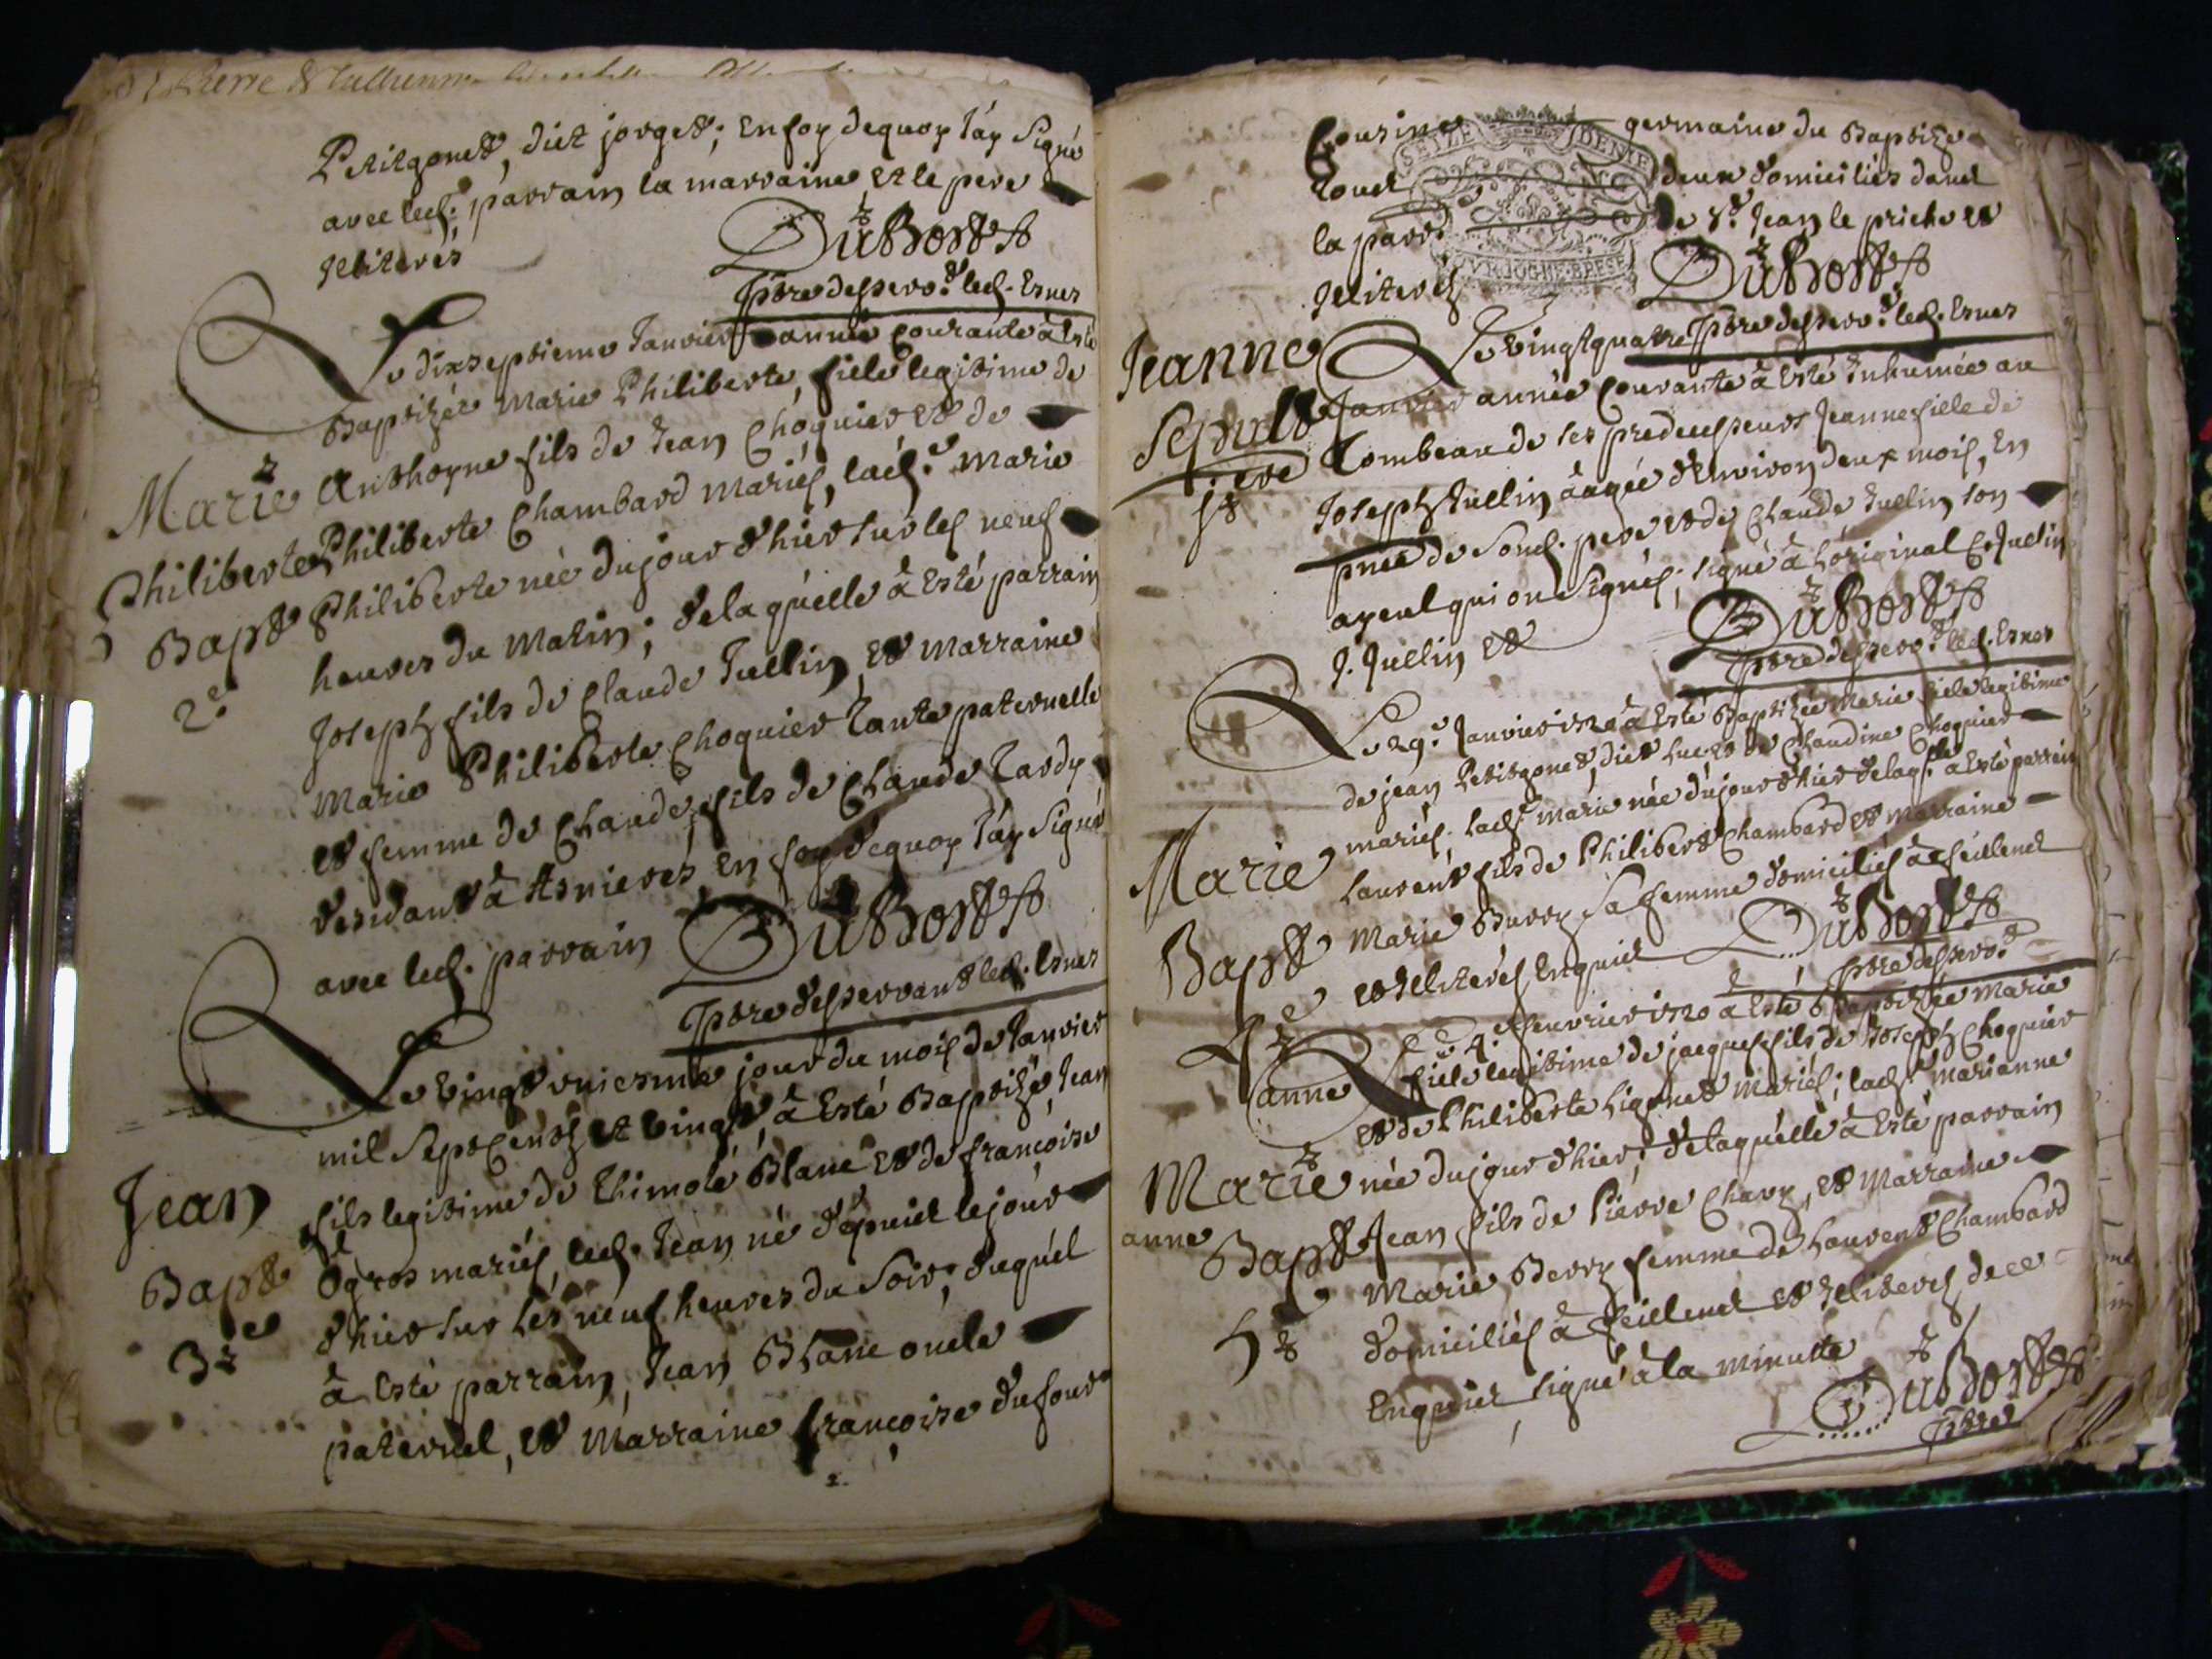 Petitgonet, dict jorget; En foy dequoy J'ay Signé
avec led. parrain la marraine et le pere
Illiterés
DuBost
ptre desserv.t led. Esnes
Le dixseptieme Janvier année Courante à Esté
Baptizée Marie Philiberte, fiele legitime de
Marie Anthoyne fils de Jean Choquier et de
Philiberte Philiberte Chambard Mariés, lad.e Marie
Bapt Philiberte née dujour d'hier sur les neuf
2.e heures du Matin; delaquelle à Esté parrain
Joseph fils de Claude Jullin, et Marraine
Marie Philiberte Choquier Tante paternelle
et femme de Claude, fils de Claude Tardy
residant à Asnieres, En foy dequoy J'ay Signé
avec led. parrain
DuBost
ptre desservant led. Esnes
Le vingt uniesme jour du mois de Janvier
mil Sept Cents et vingt, à Esté Baptizé Jean
Jean fils legitime de Thimolé Blanc et de francoise
Bapt Ogros mariés, led. Jean né depuiet le jour
3e d'hier sur les neuf heures du Soir; duquel
à Esté parrain, Jean Blanc oncle
paternel, et Marraine francoise dufour
Cousine germaine du Baptizé
touct deux domiciliés danct
la parr. de St. Jean le priche et
Illiterés
SEIZE DENIE
BOVRGOGNE BRESE
DuBost
ptre desserv.t led. Esnes
Jeanne Le vingtquatre
Sepult Janvier année Courante à Esté Inhumée au
ere Tombeau de ses predecesseurs Jeanne fille de
1 Joseph Jullin aagée d'Environ deux mois, En
pnce de Sond. pere et de Claude Jullin son
ayeul qui on Signés; signé à Loriginal C. Jullin
J. Jullin et
DuBost
ptre desserv.t led. Esnes
Le 29.e Janvier 1720 à Esté Baptizée Marie fiele legitime
de jean Petitgonet, dict Luc et de Claudine Choquier
Marie mariés; lad.e marie née dujour d'hier delaq.lle à Esté parrain
Laurent fils de Philibert Chambard et marraine
Bapt Marie Burry Sa femme domiciliés à feillenct
4e et Illiterés Enquict
DuBost
ptre desserv.t
Le 4.e feuvrier 1720 à Esté Baptizée Marie
anne fiele legitime de jacques fils de Joseph Choquier
et de Philiberte Ligonet Mariés; lad.e marianne
Marie née dujour d'hier; delaquelle à Esté parrain
anne Bapt Jean fils de Pierre Chary, et Marraine
Marie Berry femme de Laurent Chambard
5e domiciliés à feillenct et Illiterés de ce
Enquict, signé à la minutte
DuBost
ptre